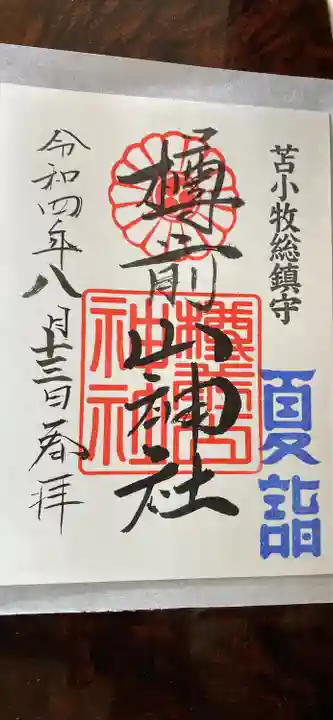 苫小牧総鎮守
夏詣
樽前山神社
樽前山
神社
令和四年八月十三日奉拝